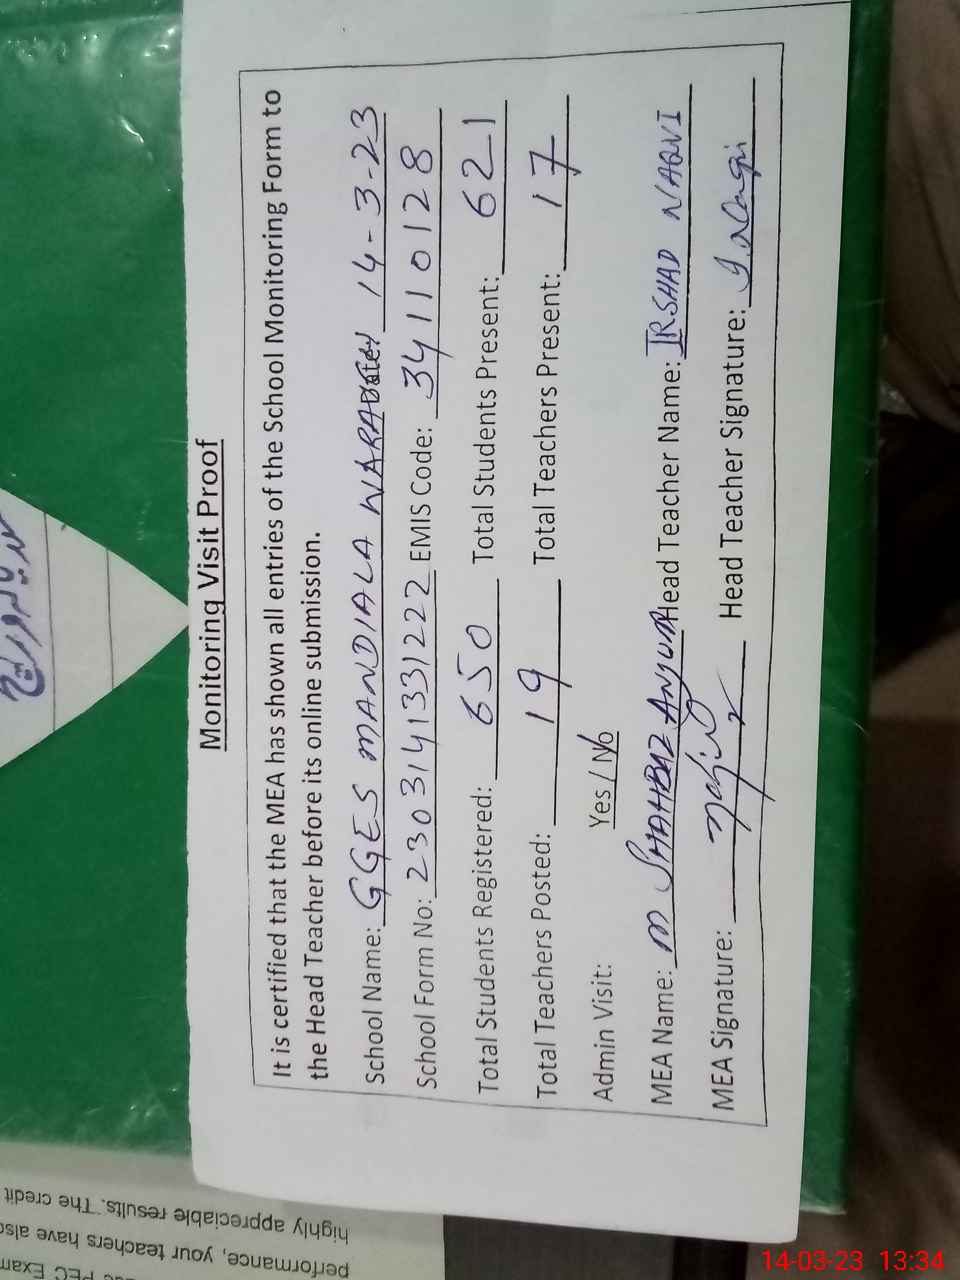 Monitoring Visit Proof
It is certified that the MEA has shown all entries of the School Monitoring Form to
the Head Teacher before its online submission.
School Name: GGES MANDIALA WARAICH Date: 14-3-23
School Form No: 2303141331222 EMIS Code: 34110128
Total Students Registered: 650 Total Students Present: 621
Total Teachers Posted: 19 Total Teachers Present: 17
Admin Visit: Yes / No
MEA Name: M SHAHBAZ ANJUM Head Teacher Name: IRSHAD NAQVI
MEA Signature: Head Teacher Signature: I. Naqvi
highly appreciable results. The credit
performance, your teachers have also
PEC Exam
14-03-23 13:34